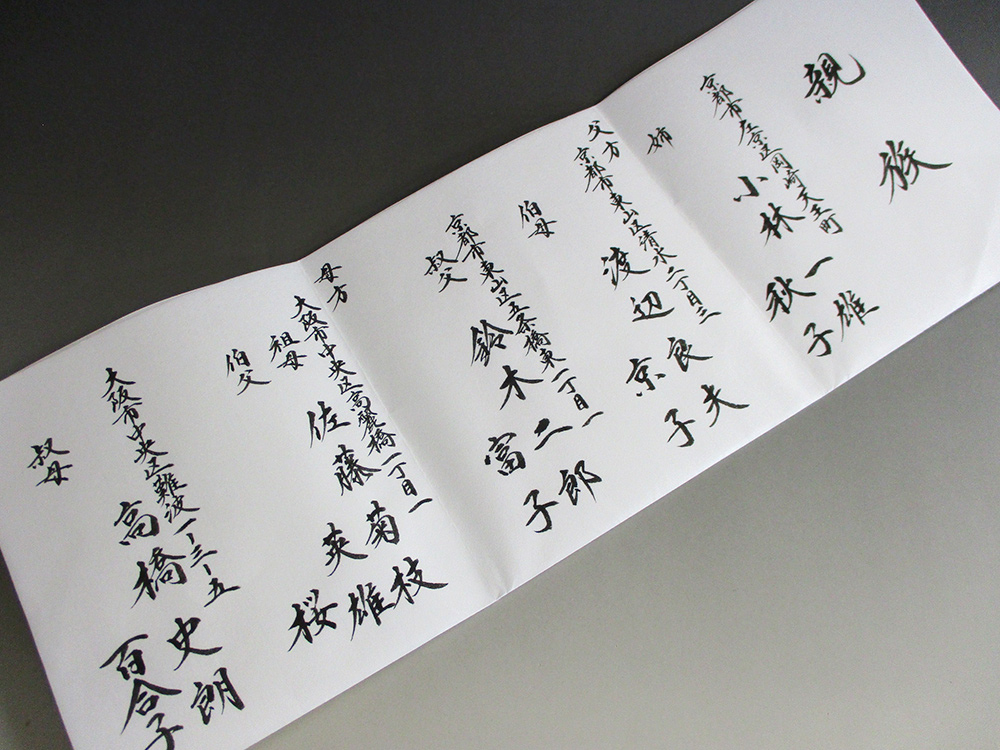 親族
京都市左京区岡崎天王町
小林一雄
姉 秋子
父方
京都市東山区清水二丁目三
渡辺良夫
伯母 京子
京都市東山区五条橋東一丁目一
叔父 鈴木二郎
富子
母方
大阪市中央区高麗橋一丁目一
祖母 佐藤菊枝
伯父 英雄
桜
大阪市中央区難波一ー三ー五
高橋史朗
叔母 百合子